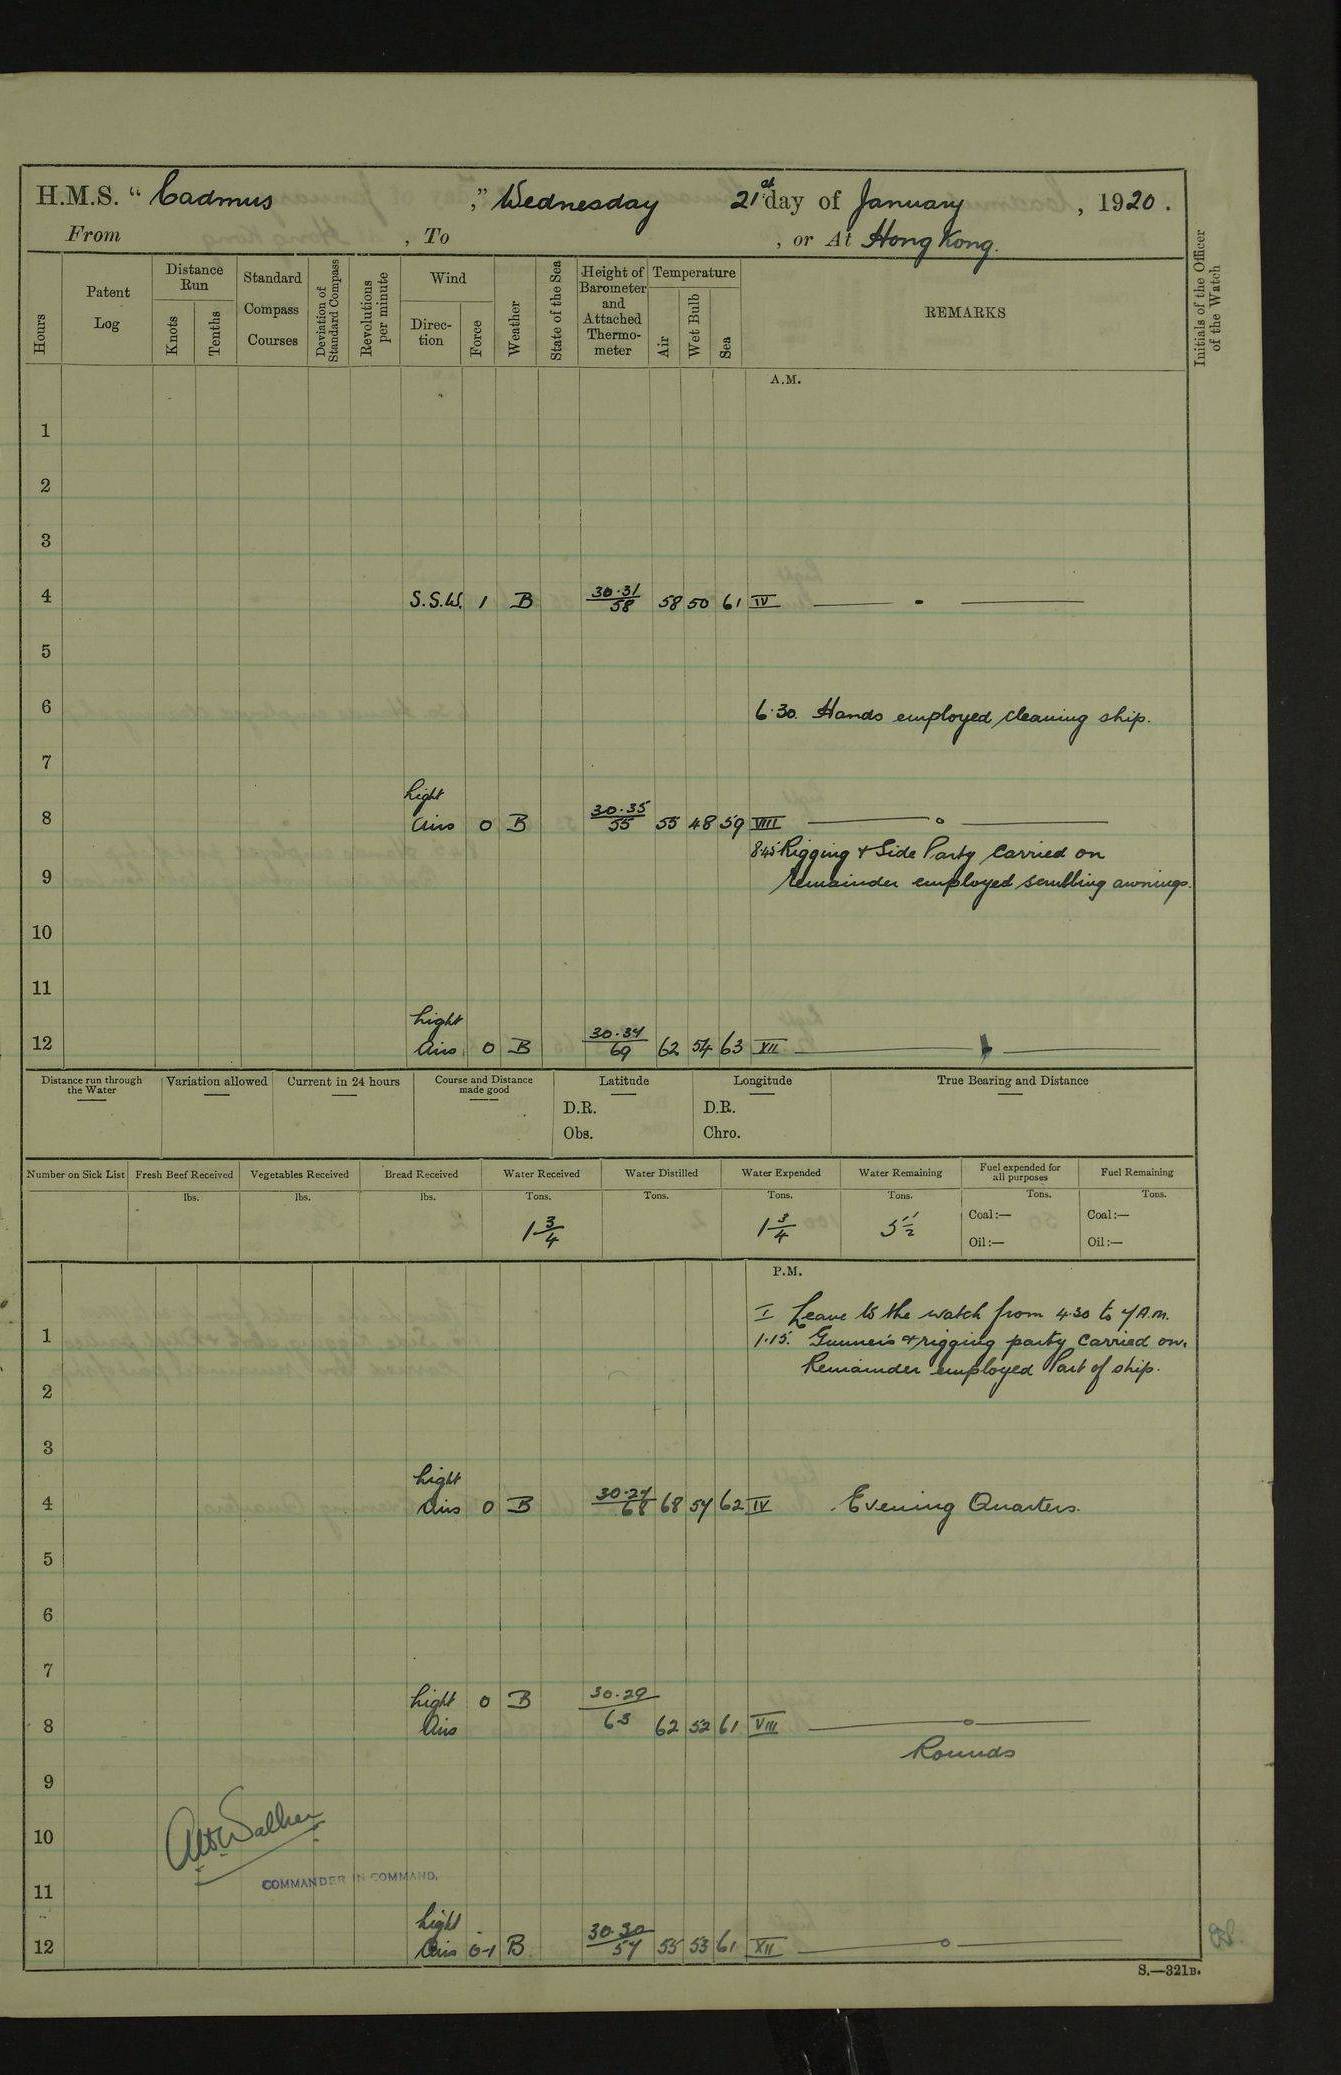 H.M.S. "Cadmus," Wednesday 21st day of January, 1920.
From , To , or At Hong Kong.
Hours
Patent Log
Distance Run
Knots
Tenths
Standard Compass Courses
Deviation of Standard Compass
Revolutions per minute
Wind
Direc-tion
Force
Weather
State of the Sea
Height of Barometer and Attached Thermo-meter
Temperature
Air
Wet Bulb
Sea
REMARKS
Initials of the Officer of the Watch
A.M.
1
2
3
4 S.S.W. 1 B 30.31/58 58 50 61 IV
5
6 6.30. Hands employed cleaning ship.
7
Light
8 Airs 0 B 30.35/55 55 48 59 VIII
8.45 Rigging & Side Party carried on
9 remainder employed scrubbing awnings.
10
11
Light
12 Airs 0 B 30.34/69 62 54 63 XII
Distance run through the Water
Variation allowed
Current in 24 hours
Course and Distance made good
Latitude
D.R.
Obs.
Longitude
D.R.
Chro.
True Bearing and Distance
Number on Sick List
Fresh Beef Received
lbs.
Vegetables Received
lbs.
Bread Received
lbs.
Water Received
Tons.
1 3/4
Water Distilled
Tons.
Water Expended
Tons.
1 3/4
Water Remaining
Tons.
Fuel expended for all purposes
Tons.
Coal:—
Oil:—
Fuel Remaining
Tons.
Coal:—
Oil:—
P.M.
I Leave to the watch from 4.30 to 7 A.M.
1 1.15. Gunner's & rigging party carried on.
Remainder employed Part of ship.
2
3
Light
4 Airs 0 B 30.27/68 68 57 62 IV Evening Quarters.
5
6
7
Light 0 B 30.29
8 Airs 63 62 52 61 VIII
Rounds
9
10
COMMANDER IN COMMAND.
11
Light
12 Airs 0-1 B 30.30/57 55 53 61 XII
S.—321B.